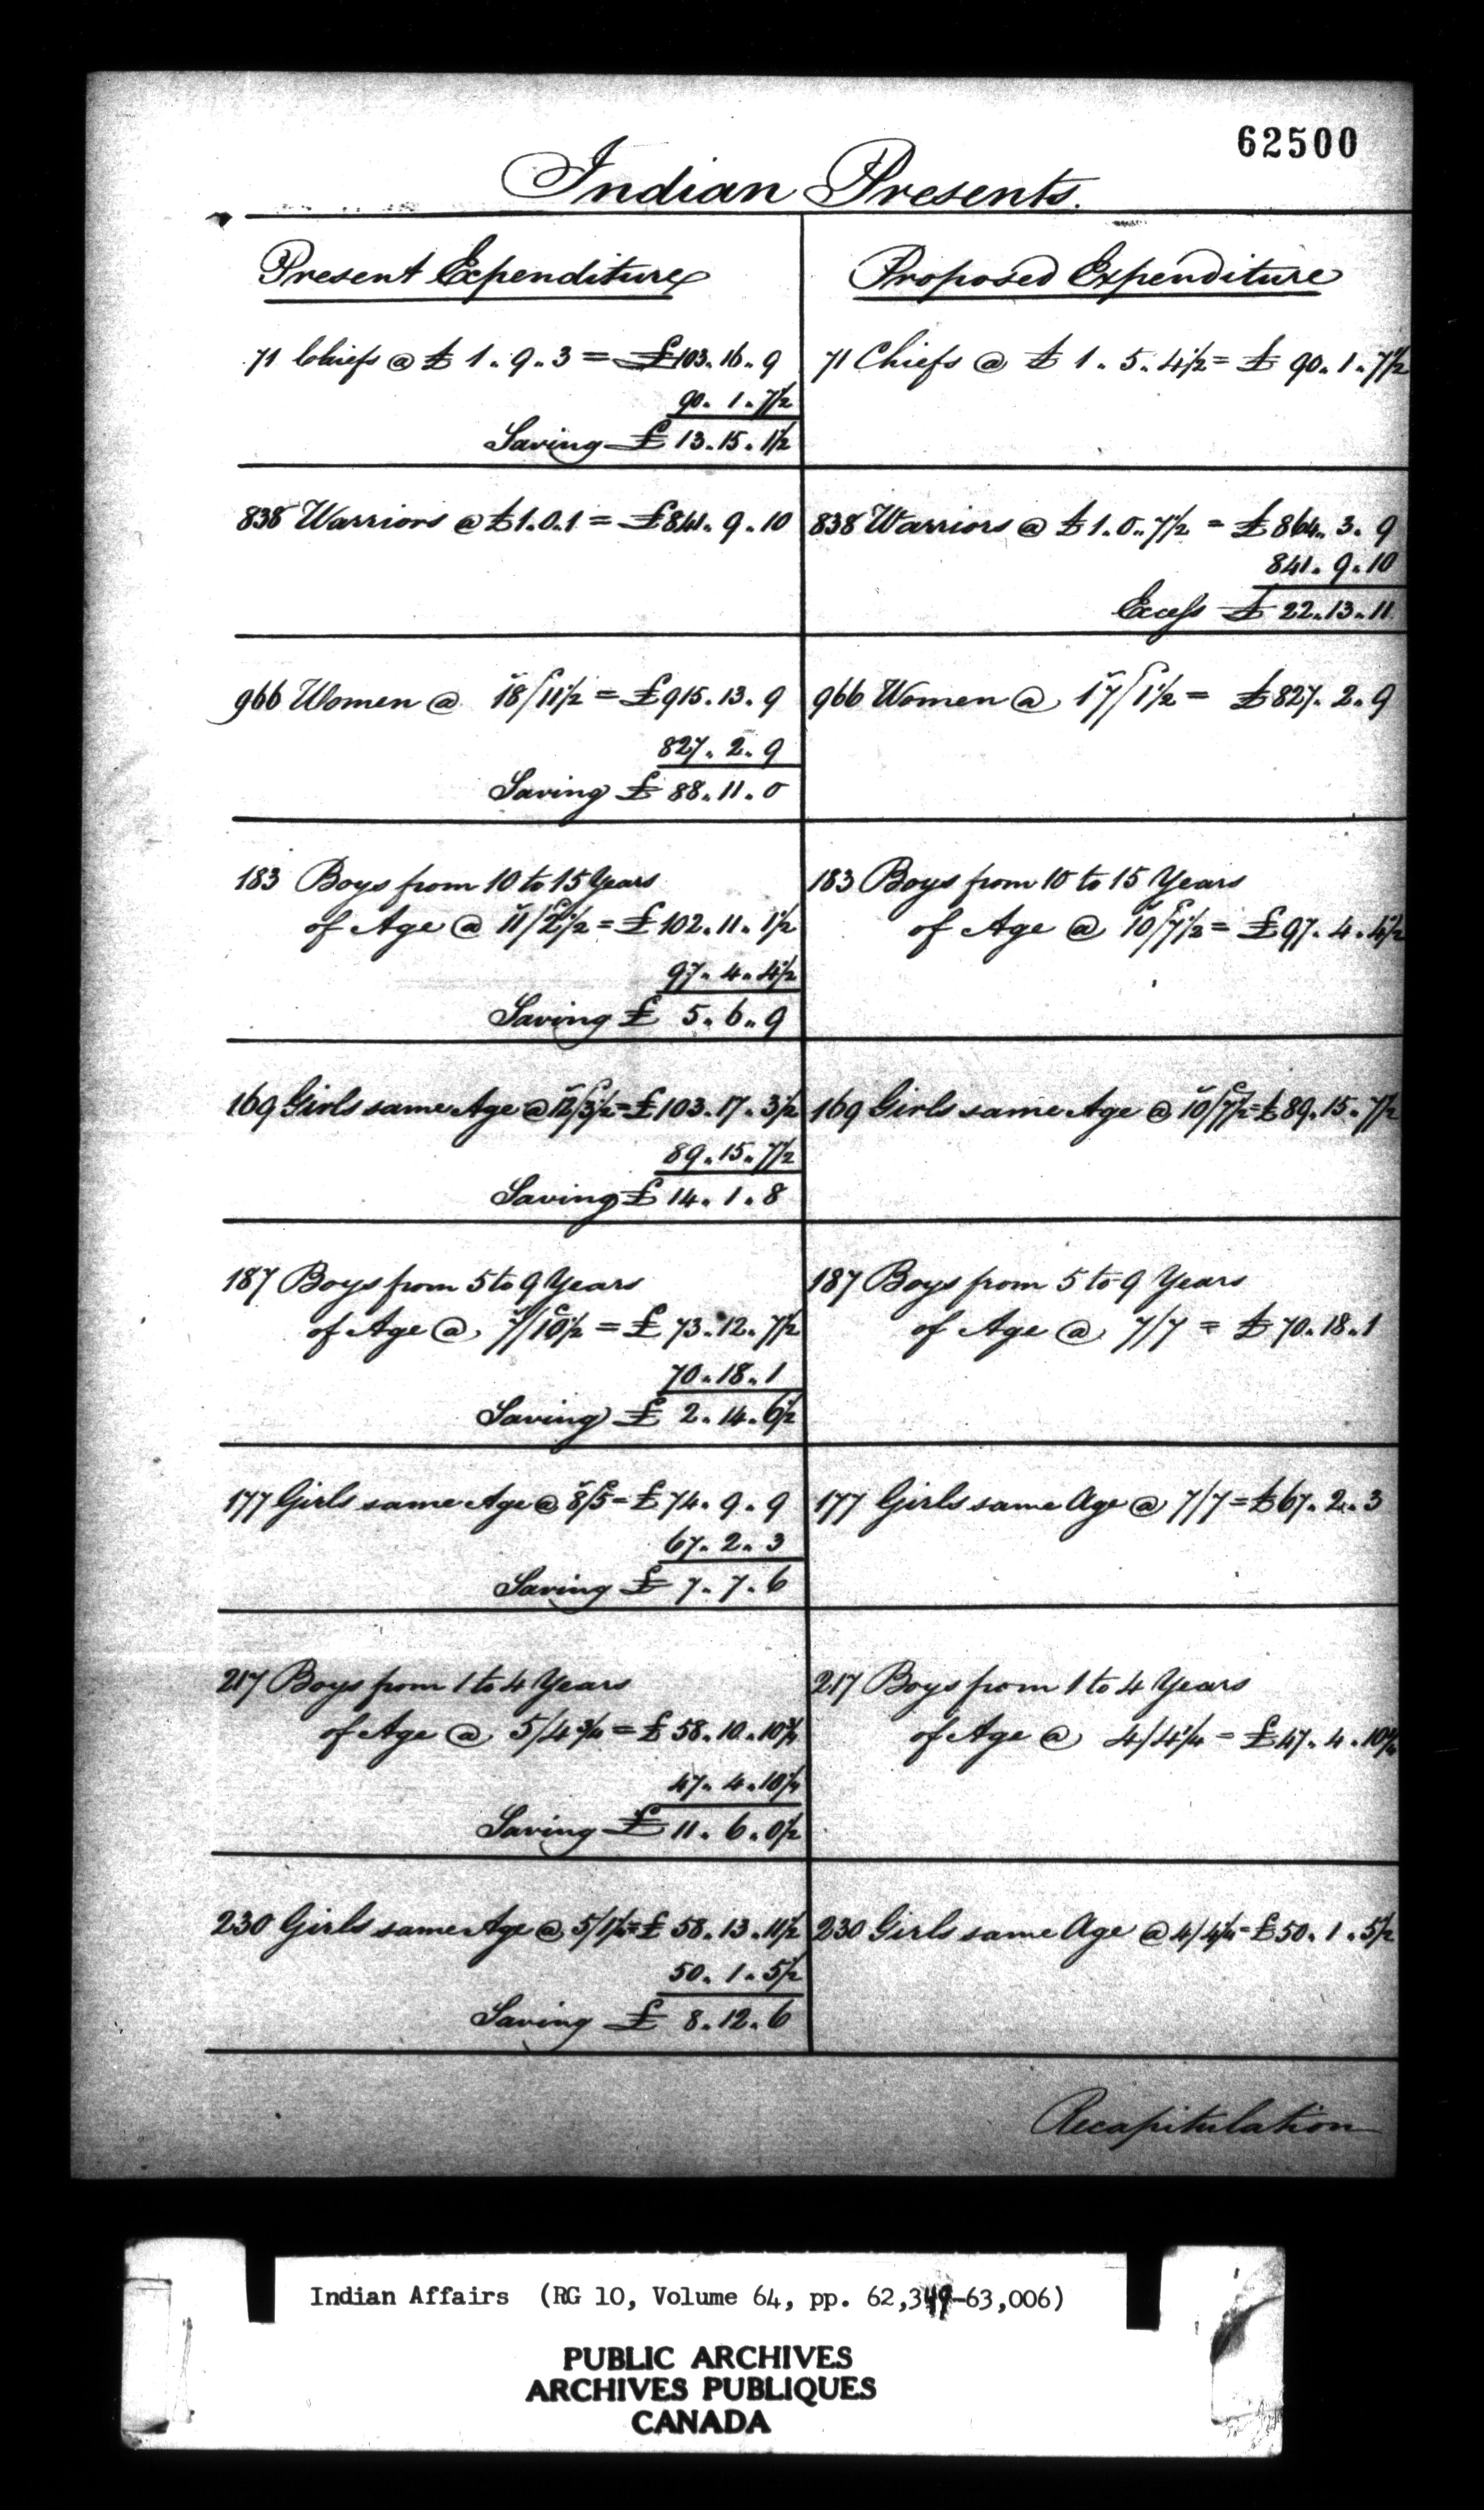 62500
Indian Presents.
Present Expenditure
71 Chiefs @ £ 1..9..3 = £103..16..9
90..1..7½
Saving £ 13..15..1½
838 Warriors @ £1.0.1 = £841..9..10
966 Women @ 18/11½ = £915..13..9
827..2..9
Saving £ 88..11..0
183 Boys from 10 to 15 Years
of Age @ 11/2½ = £102..11..1½
97..4..4½
Saving £ 5..6..9
169 Girls same Age @ 12/3½ = £103..17..3½
89..15..7½
Saving £ 14..1..8
187 Boys from 5 to 9 Years
of Age @ 7/10½ = £73..12..7½
70..18..1
Saving £ 2..14..6½
177 Girls same Age @ 8/5 = £74..9..9
67..2..3
Saving £ 7..7..6
217 Boys from 1 to 4 Years
of Age @ 5/4¾ = £58..10..10¾
47..4..10¼
Saving £ 11..6..0½
230 Girls same Age @ 5/1¼ = £58..13..11½
50..1..5½
Saving £ 8..12..6
Proposed Expenditure
71 Chiefs @ £ 1..5..4½ = £ 90..1..7½
838 Warriors @ £1..0..7½ = £864..3..9
841..9..10
Excess £ 22..13..11
966 Women @ 17/1½ = £827..2..9
183 Boys from 10 to 15 Years
of Age @ 10/7½ = £97..4..4½
169 Girls same Age @ 10/7½ = £89..15..7½
187 Boys from 5 to 9 Years
of Age @ 7/7 = £70..18..1
177 Girls same Age @ 7/7 = £67..2..3
217 Boys from 1 to 4 Years
of Age @ 4/4¼ = £47..4..10¼
230 Girls same Age @ 4/4¼ = £50..1..5½
Recapitulation
Indian Affairs (RG 10, Volume 64, pp. 62,349-63,006)
PUBLIC ARCHIVES
ARCHIVES PUBLIQUES
CANADA